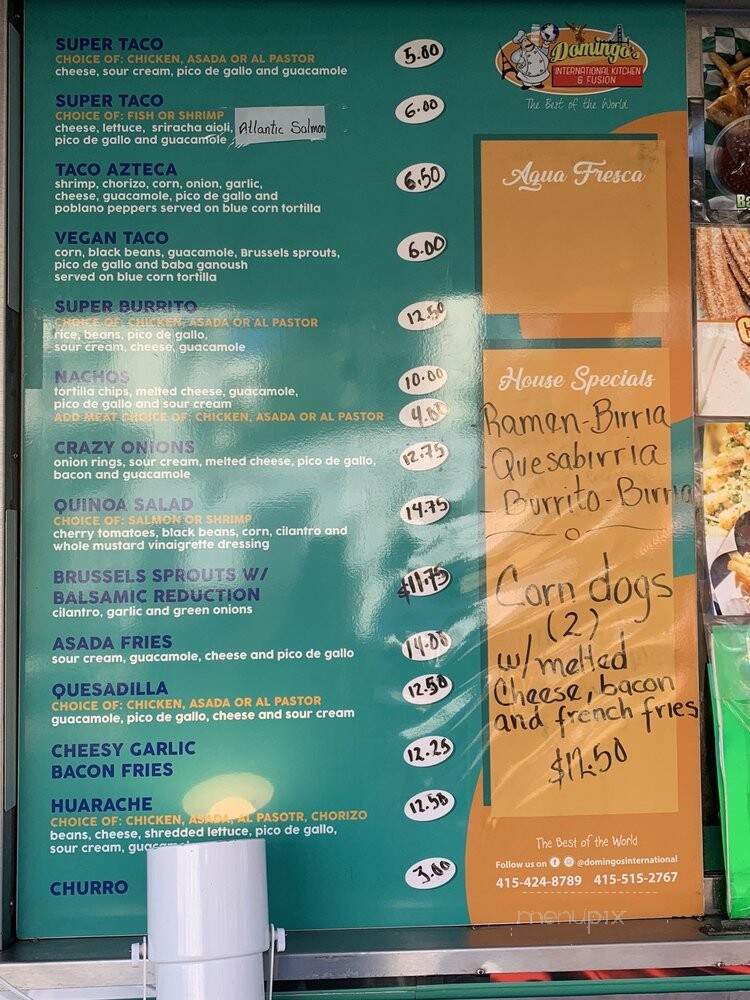 SUPER TACO
CHOICE OF: CHICKEN, ASADA OR AL PASTOR
cheese, sour cream, pico de gallo and guacamole
5.00
SUPER TACO
CHOICE OF: FISH OR SHRIMP
cheese, lettuce, sriracha aioli,
pico de gallo and guacamole
Atlantic Salmon
6.00
TACO AZTECA
shrimp, chorizo, corn, onion, garlic,
cheese, guacamole, pico de gallo and
poblano peppers served on blue corn tortilla
6.50
VEGAN TACO
corn, black beans, guacamole, Brussels sprouts,
pico de gallo and baba ganoush
served on blue corn tortilla
6.00
SUPER BURRITO
CHOICE OF: CHICKEN, ASADA OR AL PASTOR
rice, beans, pico de gallo,
sour cream, cheese, guacamole
12.50
NACHOS
tortilla chips, melted cheese, guacamole,
pico de gallo and sour cream
10.00
ADD MEAT CHOICE OF: CHICKEN, ASADA OR AL PASTOR
4.00
CRAZY ONIONS
onion rings, sour cream, melted cheese, pico de gallo,
bacon and guacamole
12.75
QUINOA SALAD
CHOICE OF: SALMON OR SHRIMP
cherry tomatoes, black beans, corn, cilantro and
whole mustard vinaigrette dressing
14.75
BRUSSELS SPROUTS W/
BALSAMIC REDUCTION
cilantro, garlic and green onions
$11.75
ASADA FRIES
sour cream, guacamole, cheese and pico de gallo
14.00
QUESADILLA
CHOICE OF: CHICKEN, ASADA OR AL PASTOR
guacamole, pico de gallo, cheese and sour cream
12.50
CHEESY GARLIC
BACON FRIES
12.25
HUARACHE
CHOICE OF: CHICKEN, ASADA, AL PASOTR, CHORIZO
beans, cheese, shredded lettuce, pico de gallo,
sour cream,
12.50
CHURRO
3.00
Domingo's
INTERNATIONAL KITCHEN
& FUSION
The Best of the World
Agua Fresca
House Specials
-Ramen-Birria
-Quesabirria
- Burrito-Birria
Corn dogs
(2)
w/melted
Cheese, bacon
and french fries
$12.50
The Best of the World
Follow us on @domingosinternational
415-424-8789 415-515-2767
menupix